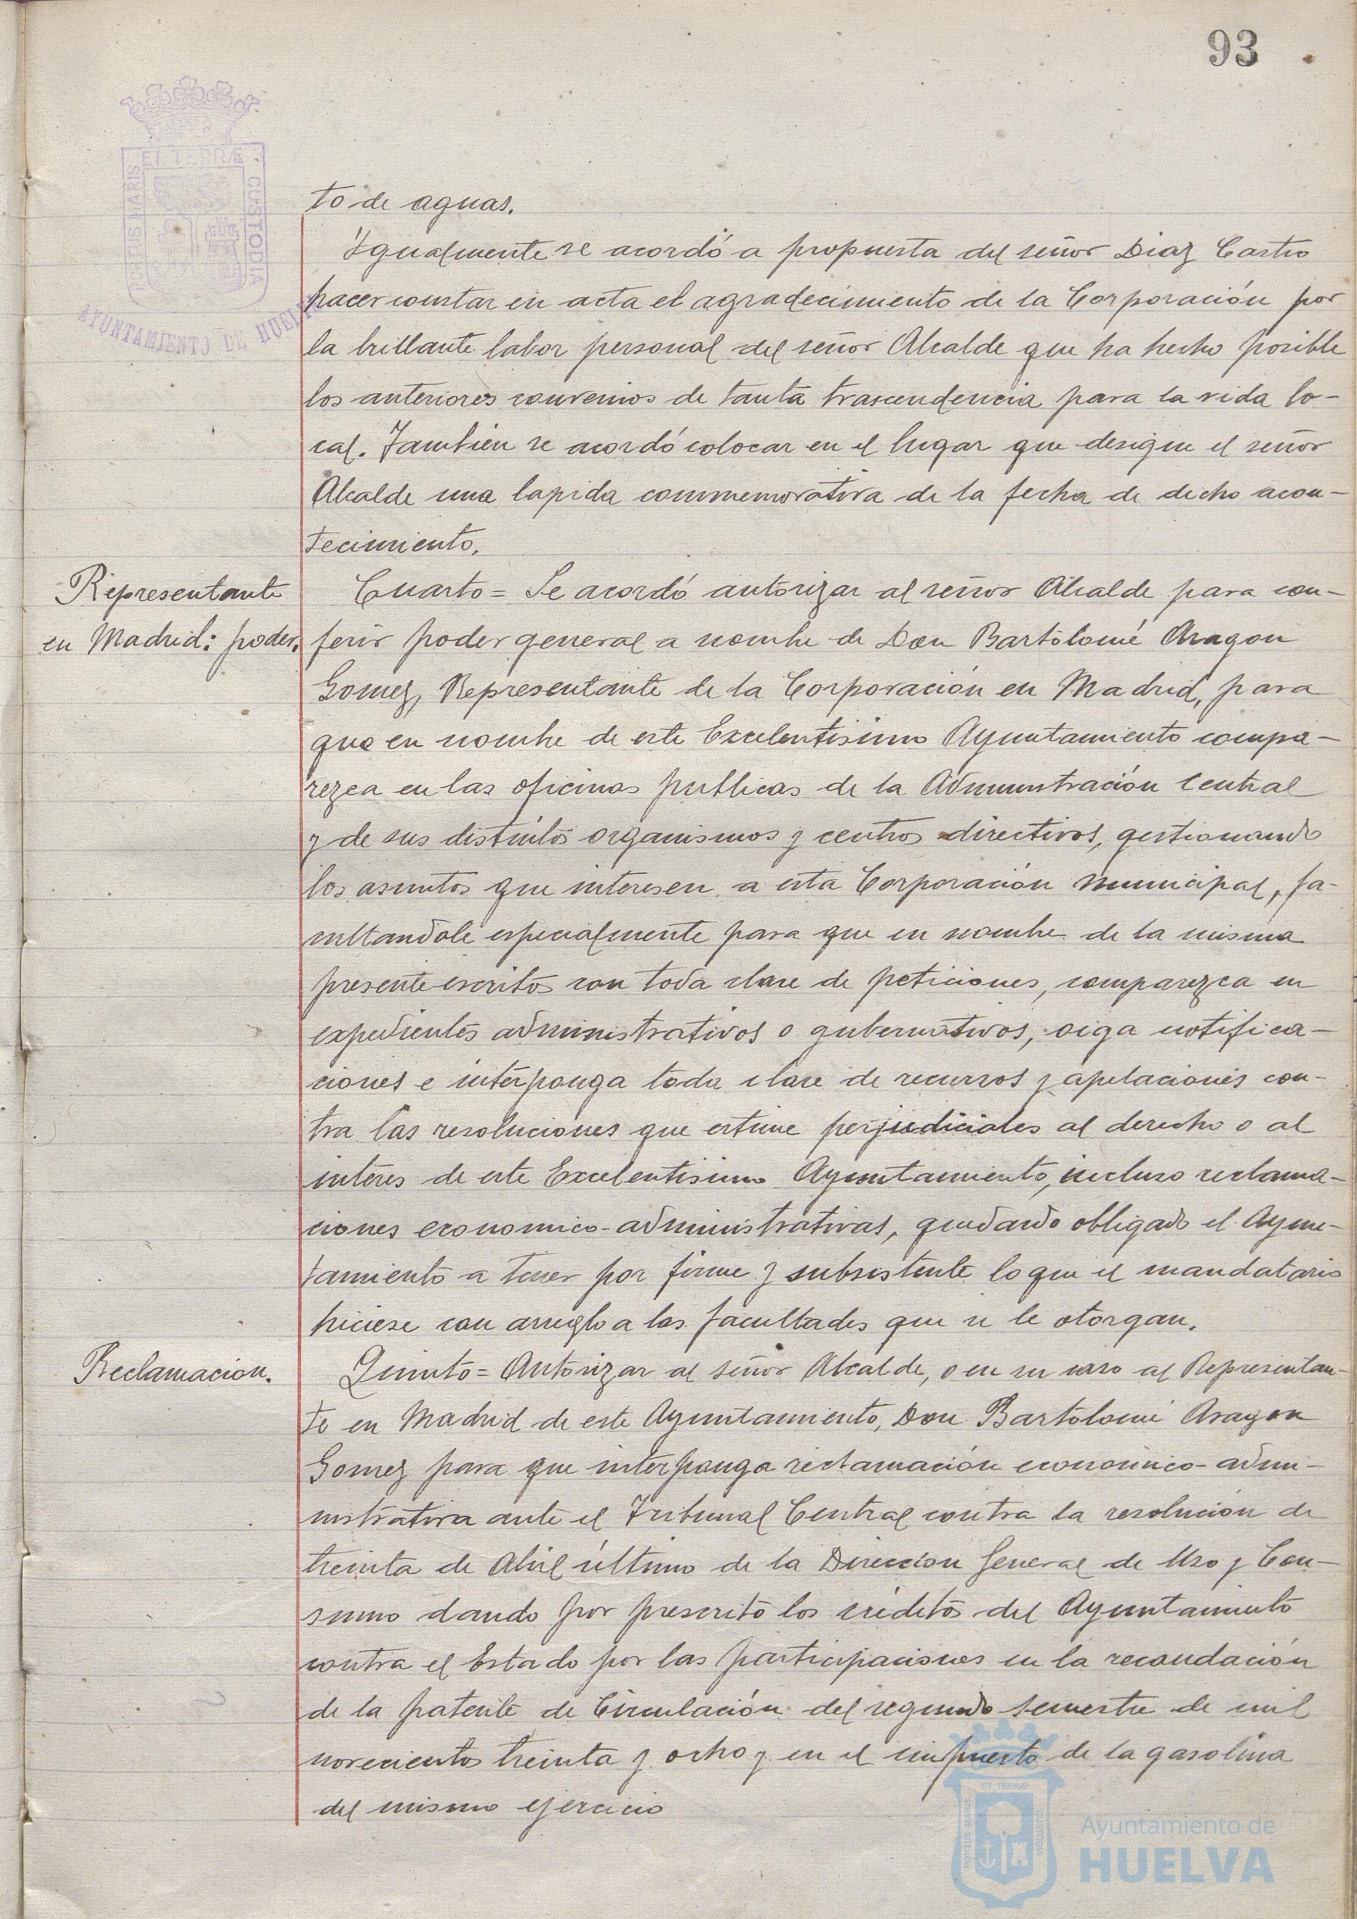 93
ET TERRÆ
PORTUS MARIS
CUSTODIA
AYUNTAMIENTO DE HUELVA
to de aguas.
Igualmente se acordó a propuesta del señor Diaz Castro
hacer constar en acta el agradecimiento de la Corporación por
la brillante labor personal del señor Alcalde que ha hecho posible
los anteriores convenios de tanta trascendencia para la vida lo-
cal. También se acordó colocar en el lugar que designe el señor
Alcalde una lapida conmemorativa de la fecha de dicho acon-
tecimiento.
Representante
en Madrid: poder.
Cuarto = Se acordó autorizar al señor Alcalde para con-
ferir poder general a nombre de Don Bartolomé Aragon
Gomez, Representante de la Corporación en Madrid, para
que en nombre de este Excelentisimo Ayuntamiento compa-
rezca en las oficinas publicas de la Administración Central
y de sus distintos organismos y centros directivos, gestionando
los asuntos que interesen a esta Corporación Municipal, fa-
cultandole especialmente para que en nombre de la misma
presente escritos con toda clase de peticiones, comparezca en
expedientes administrativos o gubernativos, oiga notifica-
ciones e interponga toda clase de recursos y apelaciones con-
tra las resoluciones que estime perjudiciales al derecho o al
interes de este Excelentisimo Ayuntamiento, incluso reclama-
ciones economico-administrativas, quedando obligado el Ayun-
tamiento a tener por firme y subsistente lo que el mandatario
hiciese con arreglo a las facultades que se le otorgan.
Reclamacion.
Quinto = Autorizar al señor Alcalde, o en su caso al Representan-
te en Madrid de este Ayuntamiento, Don Bartolomé Aragon
Gomez para que interponga reclamación economico-admi-
nistrativa ante el Tribunal Central contra la resolución de
treinta de Abril último de la Direccion General de Uso y Con-
sumo dando por prescrito los créditos del Ayuntamiento
contra el Estado por las participaciones en la recaudación
de la patente de Circulación del segundo semestre de mil
novecientos treinta y ocho y en el impuesto de la gasolina
del mismo ejercicio
ET TERRÆ
PORTUS MARIS
CUSTODIA
Ayuntamiento de
HUELVA